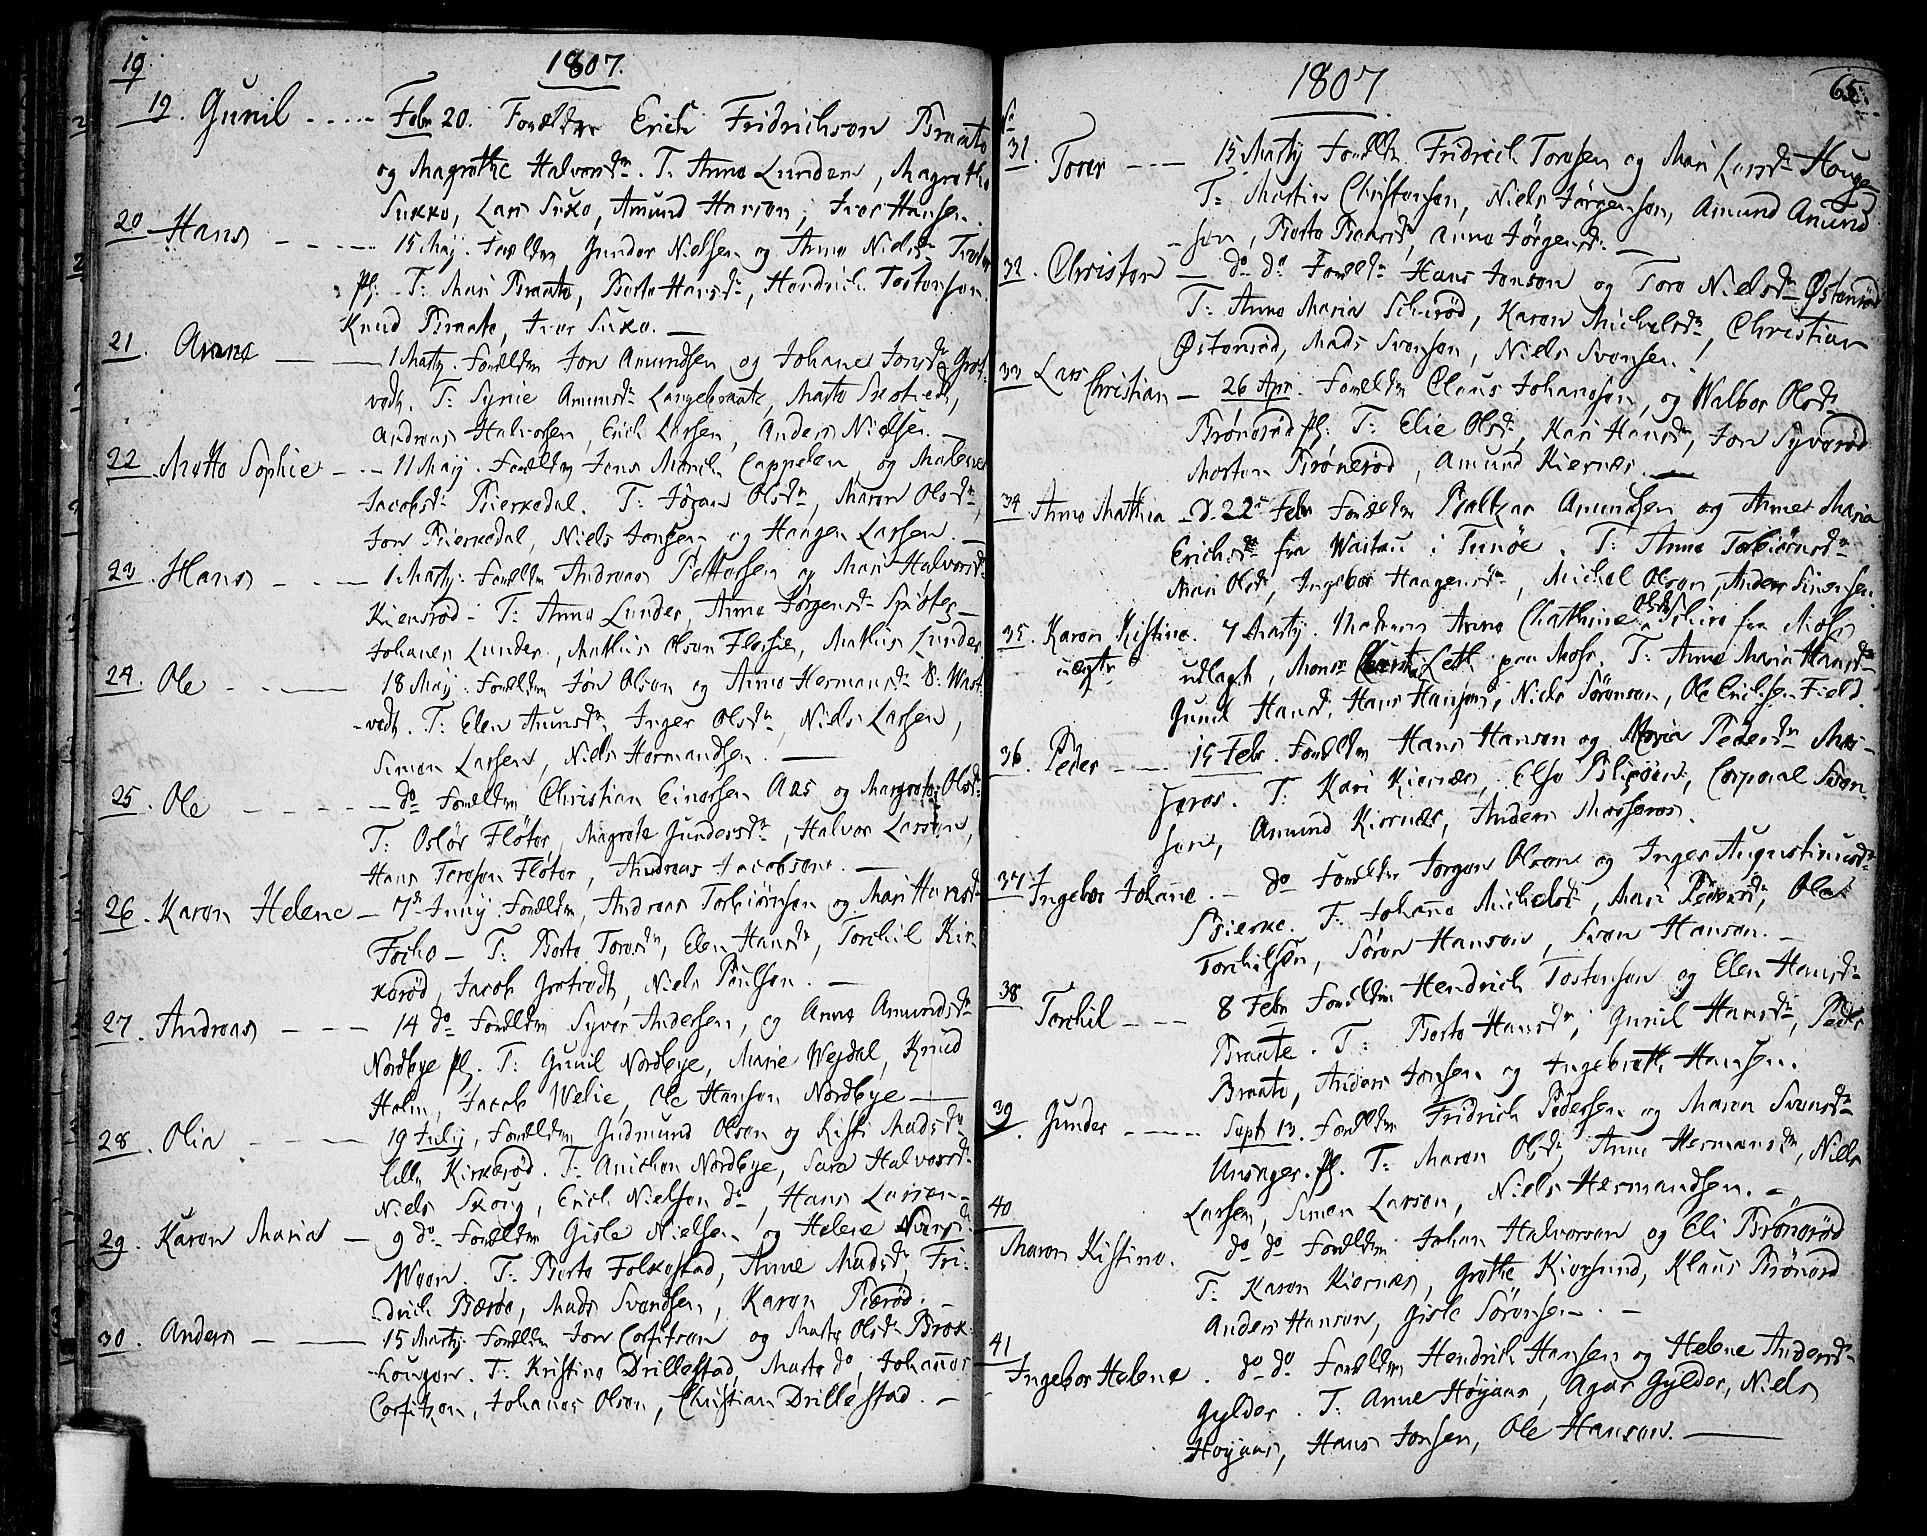 19.
1807.
19. Gunil - - - - - Febr 20. Forældre Erich Fridrichson Braate
og Magrethe Halvorsdr. T: Anne Lunder, Magrethe
Suxko, Lars Suxo, Amund Hanson, Iver Hansen.
20 Hans - - - - - 15 Maij. Forældre Gunder Nielsen og Anne Nielsdr
pl. T: Mari Braate, Berte Hansdr, Hendrich Tostensen
Knud Braate, Iver Suxo. —
21. Anne — — 1 Martj. Forældre Jon Amundsen og Johane Jonsdr Grøt-
vedt. T: Synie Amunsdr Langebraate, Marte
Andreas Halvorsen, Erich Larsen, Anders Nielsen. —
22 Mette Sophie - - - 11 Maij. Forældre Jens Munch Cappelen og Malene
Jacobsdr Bierkedal. T: Jøran Olsdr, Maren Olsdr,
Jon Bierkedal, Niels Jonsen og Haagen Larsen. —
23. Hans - - - 1 Martj. Forældre Andreas Pettersen og Mari Halvorsdr
Kiensrød - T: Anne Lunder, Anne Jørgensdr
Johanes Lunder, Mathis Olson Flessie, Mathis Lunder.
24. Ole - - - 18 Maij. Forældre Jon Olson og Anne Hermansdr Ø: West-
vedt. T: Elen Aunsdr, Inger Olsdr, Niels Larsen,
Simen Larsen, Niels Hermandsen. —
25. Ole - - - - — do Forældre Christian Einersen Aas og Margrete Olsdr
T: Osløs Fløter, Magrete Gundersdr, Halvor Larson,
Hans Tereson Fløter, Andreas Jacobsen. —
26. Karen Helene — 7de Junij Forældre, Andreas Torbiørnsen og Mari Hansdr
Focho — T: Berte Toresdr, Elen Hansdr, Torchil Kir-
kerød, Jacob Grøtvedt, Niels Poulsen. —
27. Andreas - - - 14 do Forældre Syver Andersen, og Anne Amundsdr
Nordbye pl. T: Gunil Nordbye, Marie Wejdal, Knud
Holm, Jacob Welie, Ole Hanson Nordbye —
28. Olia - - - 19 Julij, Forældre Gudmund Olson og Kisti Madsdr
lille Kirkerød. T: Anichen Nordbye, Sara Halvorsdr
Niels Skoug, Erich Nielson do, Hans Larsen -
29. Karen Maria — 9 do Forældre Gisle Nielsen og Helene Svensdr
Woen. T: Berte Folkestad, Anne Madsdr, Fri-
drich Bærøe, Mads Svendsen, Karen Bærød. —
30. Anders — — 15 Martj. Forældre Jon Corfitzen og Marte Olsdr Brek-
kougen. T: Kristine Drillestad, Marte do, Johannes
Corfitzen, Johanes Olsen, Christian Drillestad. —
1807
65.
No
31. Torer - - - 15 Martj Forældre Fridrich Toresen og Mari Larsdr Hougen
T: Martin Christensen, Niels Jørgensen, Amund Amund-
sen, Berte Hansdr, Anne Jørgensdr. —
32. Christen — do do Forældre Hans Jonson og Tore Nielsdr Østenrød
T: Anne Maria Schirød, Karen Michelsdr, Christian
Østenrød, Mads Svensen, Niels Svensen.
33 Lars
Christian — 26 Apr. Forældre Claus Johansen, og Walbor Olsdr
Brønerød pl. T: Elie Olsdr, Kari Hansdr, Jon Syverød
Morten Brønerød, Amund Kiernæs. —
34 Anne Mathia - d. 22de Febr Forældre Baltzer Amundsen og Anne Maria
Erichsdr fra Waitau i Tunøe. T: Anne Torbiørnsdr
Mari Olsdr, Ingebor Haagensdr, Michel Olson, Anders Simensen.
35. Karen Kistine. 7 Martj. Moderen Anne Chathrine Olsdr Schive fra Moss
uægte
udlagt, Monsr Christ. Leth paa Moss. T: Anne Maria Hansdr
Gunil Hansdr, Hans Hansen, Niels Sørensen, Ole Erichsen Field.
36 Peder - - - 15 Febr. Forældre Hans Hanson og Maria Pedersdr Mos-
seros. T: Kari Kiernæs, Else Bligøen, Corporal Sven-
sen, Amund Kiernæs, Anders Mosseros.
37 Ingebor Johane. - do Forældre Jørgen Olson og Inger Augustinusdr
Bierke. T: Johane Michelsdr, Mari Pedersdr, Ole
Torchilsen, Søren Hanson, Sven Hanson. —
38
Torchil - - - 8 Febr Forældre Hendrich Tostenson og Elen Hansdr
Braate. T: Berte Hansdr, Gunil Hansdr, Peder
Braate, Anders Jonsen og Ingebreth Hansen.
39. Gunder - - - - Sept 13. Forældre Fridrich Pedersen og Maren Svensdr
Unsager pl. T: Maren Olsdr, Anne Hermansdr, Niels
Larsen, Simen Larsen, Niels Hermandsen. —
40
Maren Kistine. do do Forældre Johan Halvorsen og Eli Brønerød
T: Karen Kiernæs, Grethe Kiersund, Klaus Brønerød
Anders Hanson, Gisle Sørensen. —
41
Ingebor Helene. do do Forældre Hendrich Hansen og Helene Andersdr
Gylder. T: Anne Høyaas, Agar Gylder, Niels
Høyaas, Hans Jonsen, Ole Hanson. —